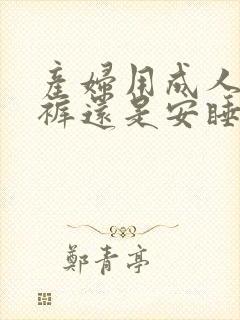 產婦用成人
褲還是安睡
鄭青亭